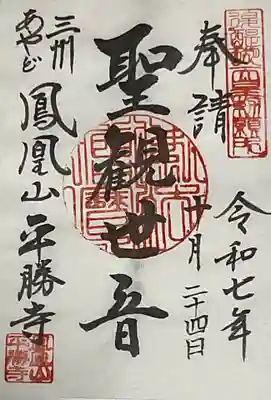 奉請
令和七年
十月
二十四日
聖観世音
三州
あやど
鳳凰山平勝寺